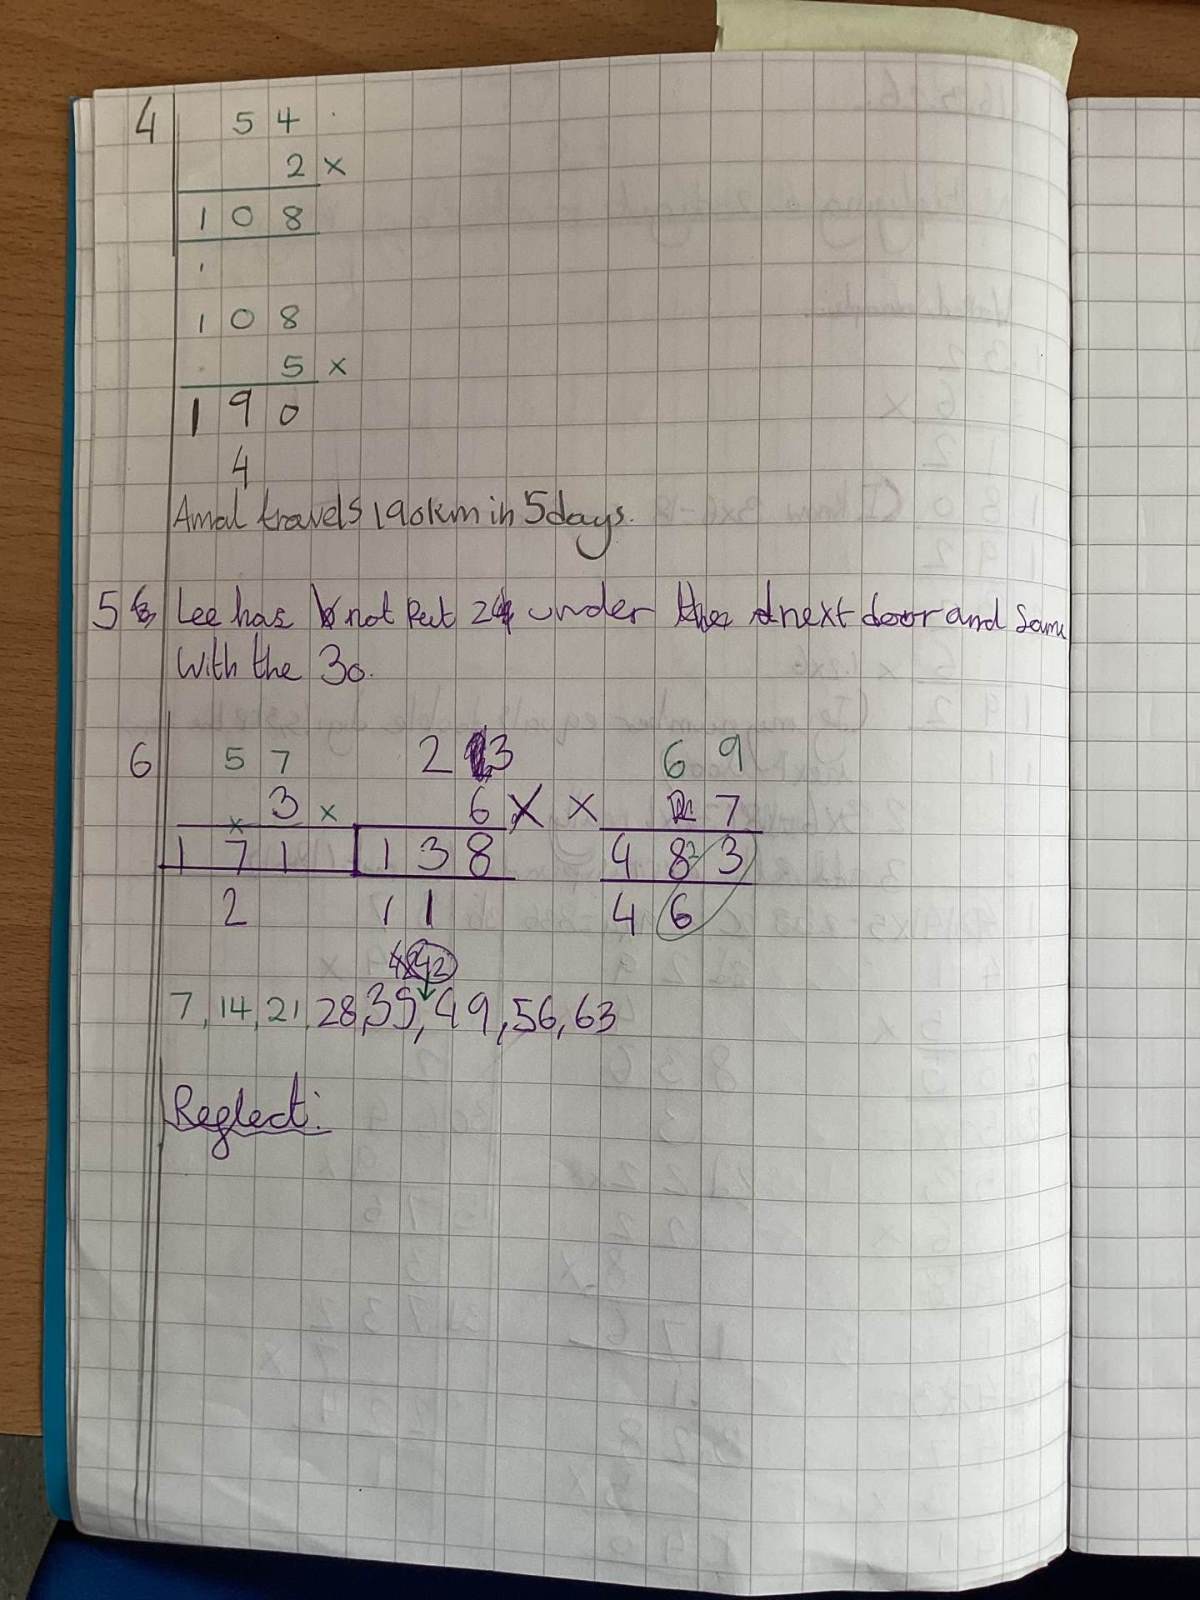 4 5 4
2 ×
1 0 8
1 0 8
5 ×
1 9 0
4
Amal travels 190km in 5 days.
5 Lee has not Put 24 under the next door and Same
With the 30.
6 5 7 2 3 6 9
3 × 6 × × 7
1 7 1 1 3 8 4 8 3
2 1 1 4 6
42
7, 14, 21, 28, 35, 49, 56, 63
Reglect: